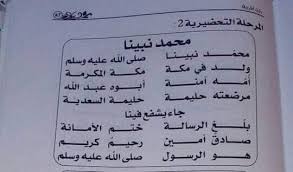 المرحلة التحضيرية 2:
محمد نبينا
محمد نبينا صلى الله عليه وسلم
ولد في مكة مكة المكرمة
أمه آمنة أبوه عبد الله
مرضعته حليمة حليمة السعدية
جاء يشفع فينا
بلغ الرسالة ختم الأمانة
صادق أمين رحيم كريم
هو الرسول صلى الله عليه وسلم